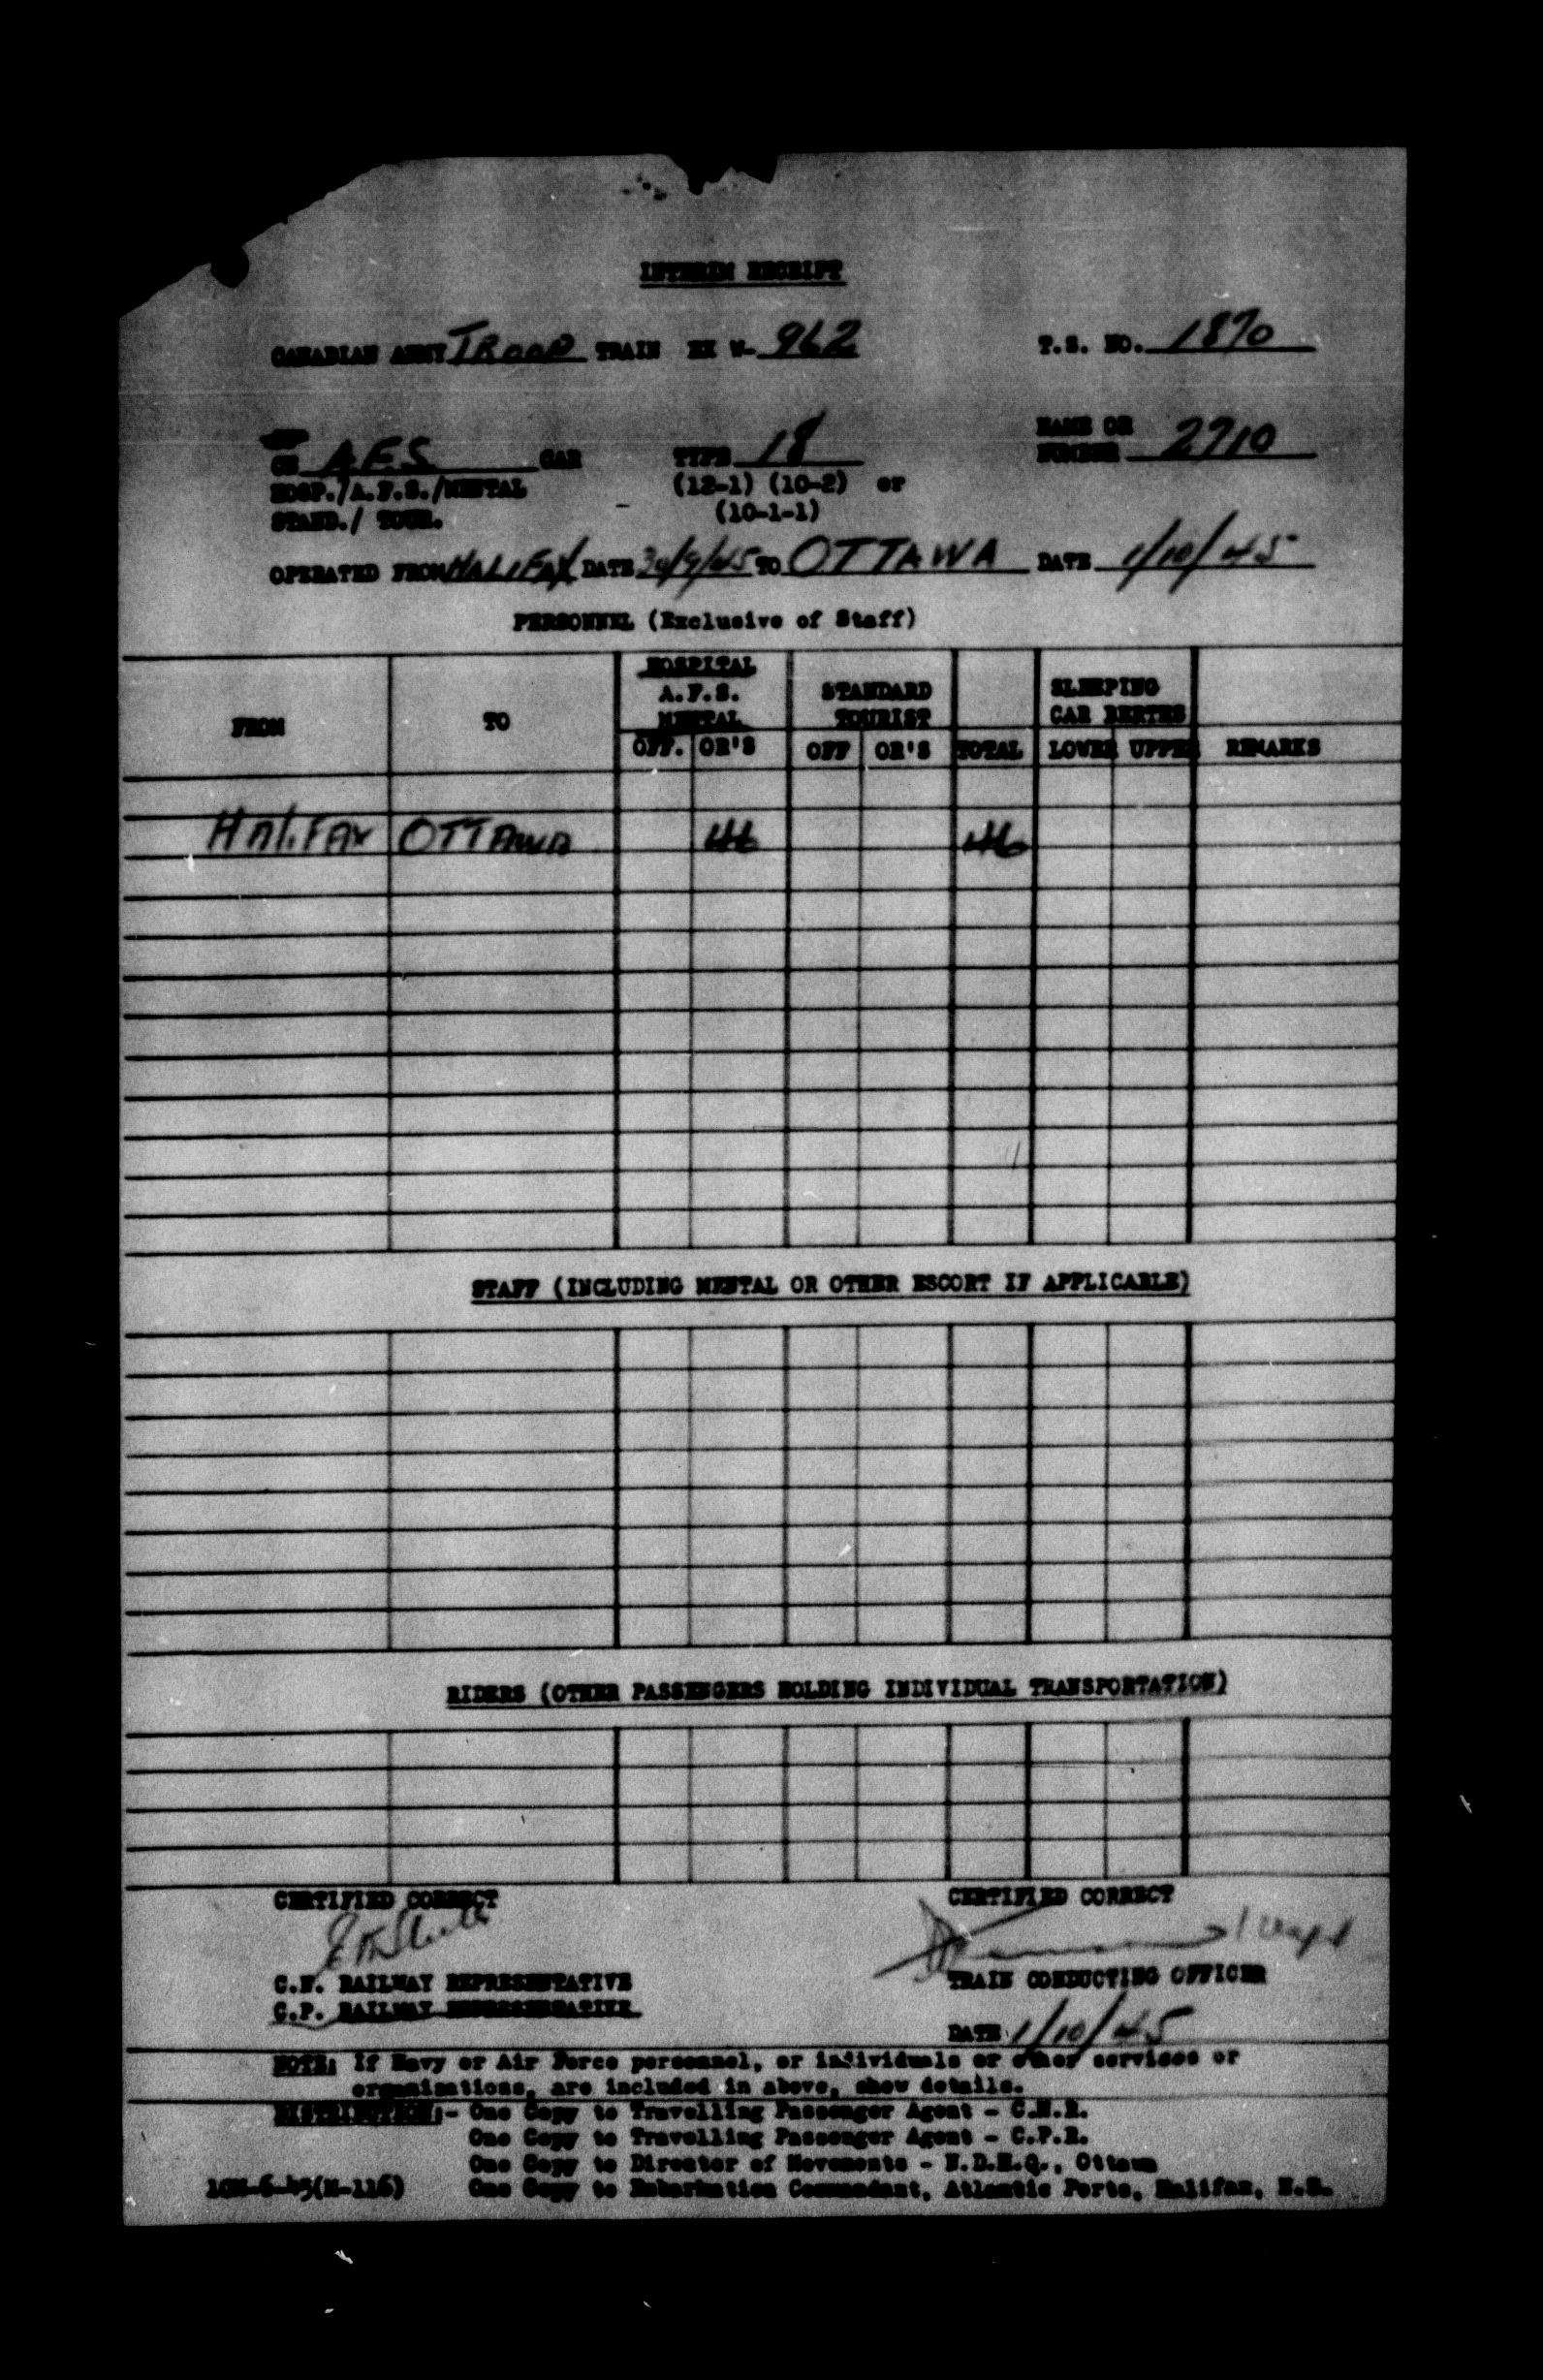 INTERIM RECEIPT
CANADIAN ARMY TROOP TRAIN EX W- 962 T.S. NO. 1870
OR A.F.S CAR TYPE 18 NAME OR NUMBER 2710
HOSP./A.F.S./MENTAL (12-1) (10-2) or
STAND./ TOUR. (10-1-1)
OPERATED FROM HALIFAX DATE 30/9/45 TO OTTAWA DATE 1/10/45
PERSONNEL (Exclusive of Staff)
FROM TO HOSPITAL A.F.S. MENTAL STANDARD TOURIST SLEEPING CAR BERTHS
OFF. OR'S OFF OR'S TOTAL LOWER UPPER REMARKS
HALIFAX OTTAWA 46 46
STAFF (INCLUDING MENTAL OR OTHER ESCORT IF APPLICABLE)
RIDERS (OTHER PASSENGERS HOLDING INDIVIDUAL TRANSPORTATION)
CERTIFIED CORRECT CERTIFIED CORRECT
Capt
C.N. RAILWAY REPRESENTATIVE TRAIN CONDUCTING OFFICER
C.P. RAILWAY REPRESENTATIVE
DATE 1/10/45
NOTE: If Navy or Air Force personnel, or individuals or other services or
organizations, are included in above, show details.
DISTRIBUTION:- One Copy to Travelling Passenger Agent - C.N.R.
One Copy to Travelling Passenger Agent - C.P.R.
One Copy to Director of Movements - N.D.H.Q., Ottawa
10M-6-45(M-116) One Copy to Embarkation Commandant, Atlantic Ports, Halifax, N.S.